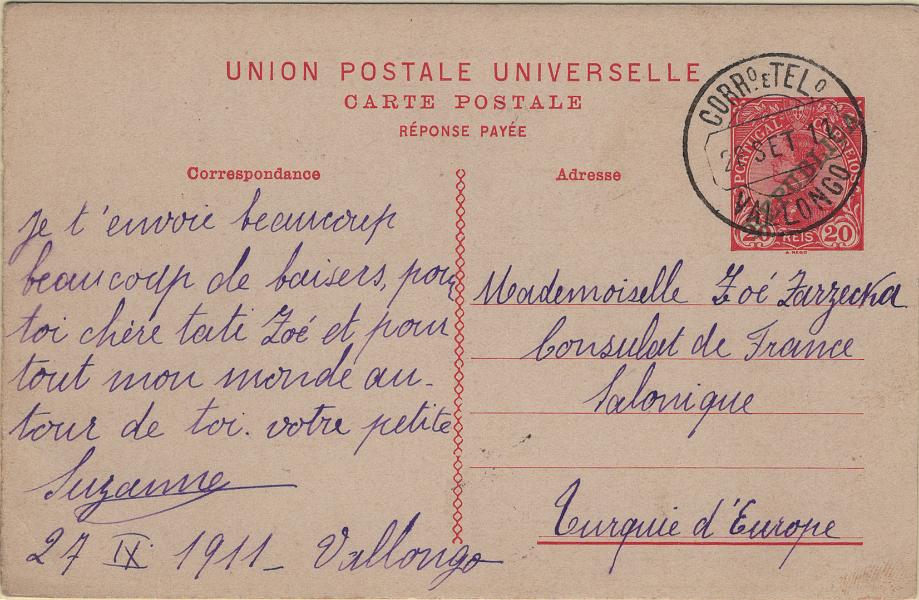 UNION POSTALE UNIVERSELLE
CARTE POSTALE
RÉPONSE PAYÉE
CORRO E TELO
SET 11
VALLONGO
PORTUGAL CORREIO
REPUBLICA
20 REIS 20
Correspondance
Je t'envoie beaucoup
beaucoup de baisers, pour
toi chère tati Zoé et pour
tout mon monde au-
tour de toi. votre petite
Suzanne
27 IX 1911 - Vallongo
Adresse
Mademoiselle Zoé Zarzecka
Consulat de France
Salonique
Turquie d'Europe